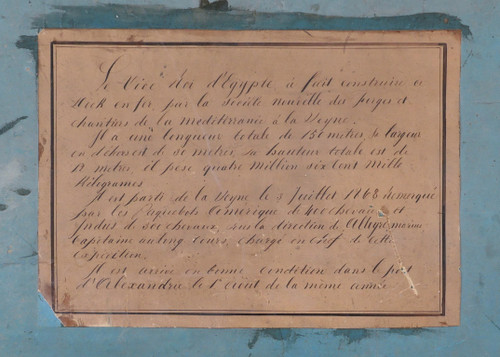 Le Vice Roi d'Egypte à fait construire ce
Dock en fer, par la Société nouvelle des forges et
chantiers de la mediterranée à la Seyne.
Il a une longueur totale de 136 metres, sa largeur
en dehors est de 30 metres, sa hauteur totale est de
12 metres, il pese quatre million six cent mille
Kilogrames
Il est parti de la Seyne le 5 Juillet 1868 remorqué
par les Paquebots Amerique de 400 chevaux et
Indus de 500 chevaux, sous la direction de Allegre marius
Capitaine au long Cours, chargé en chef de cette
expedition.
Il est arrivé en bonne condition dans le port
d'Alexandrie le 1er Aout de la même année